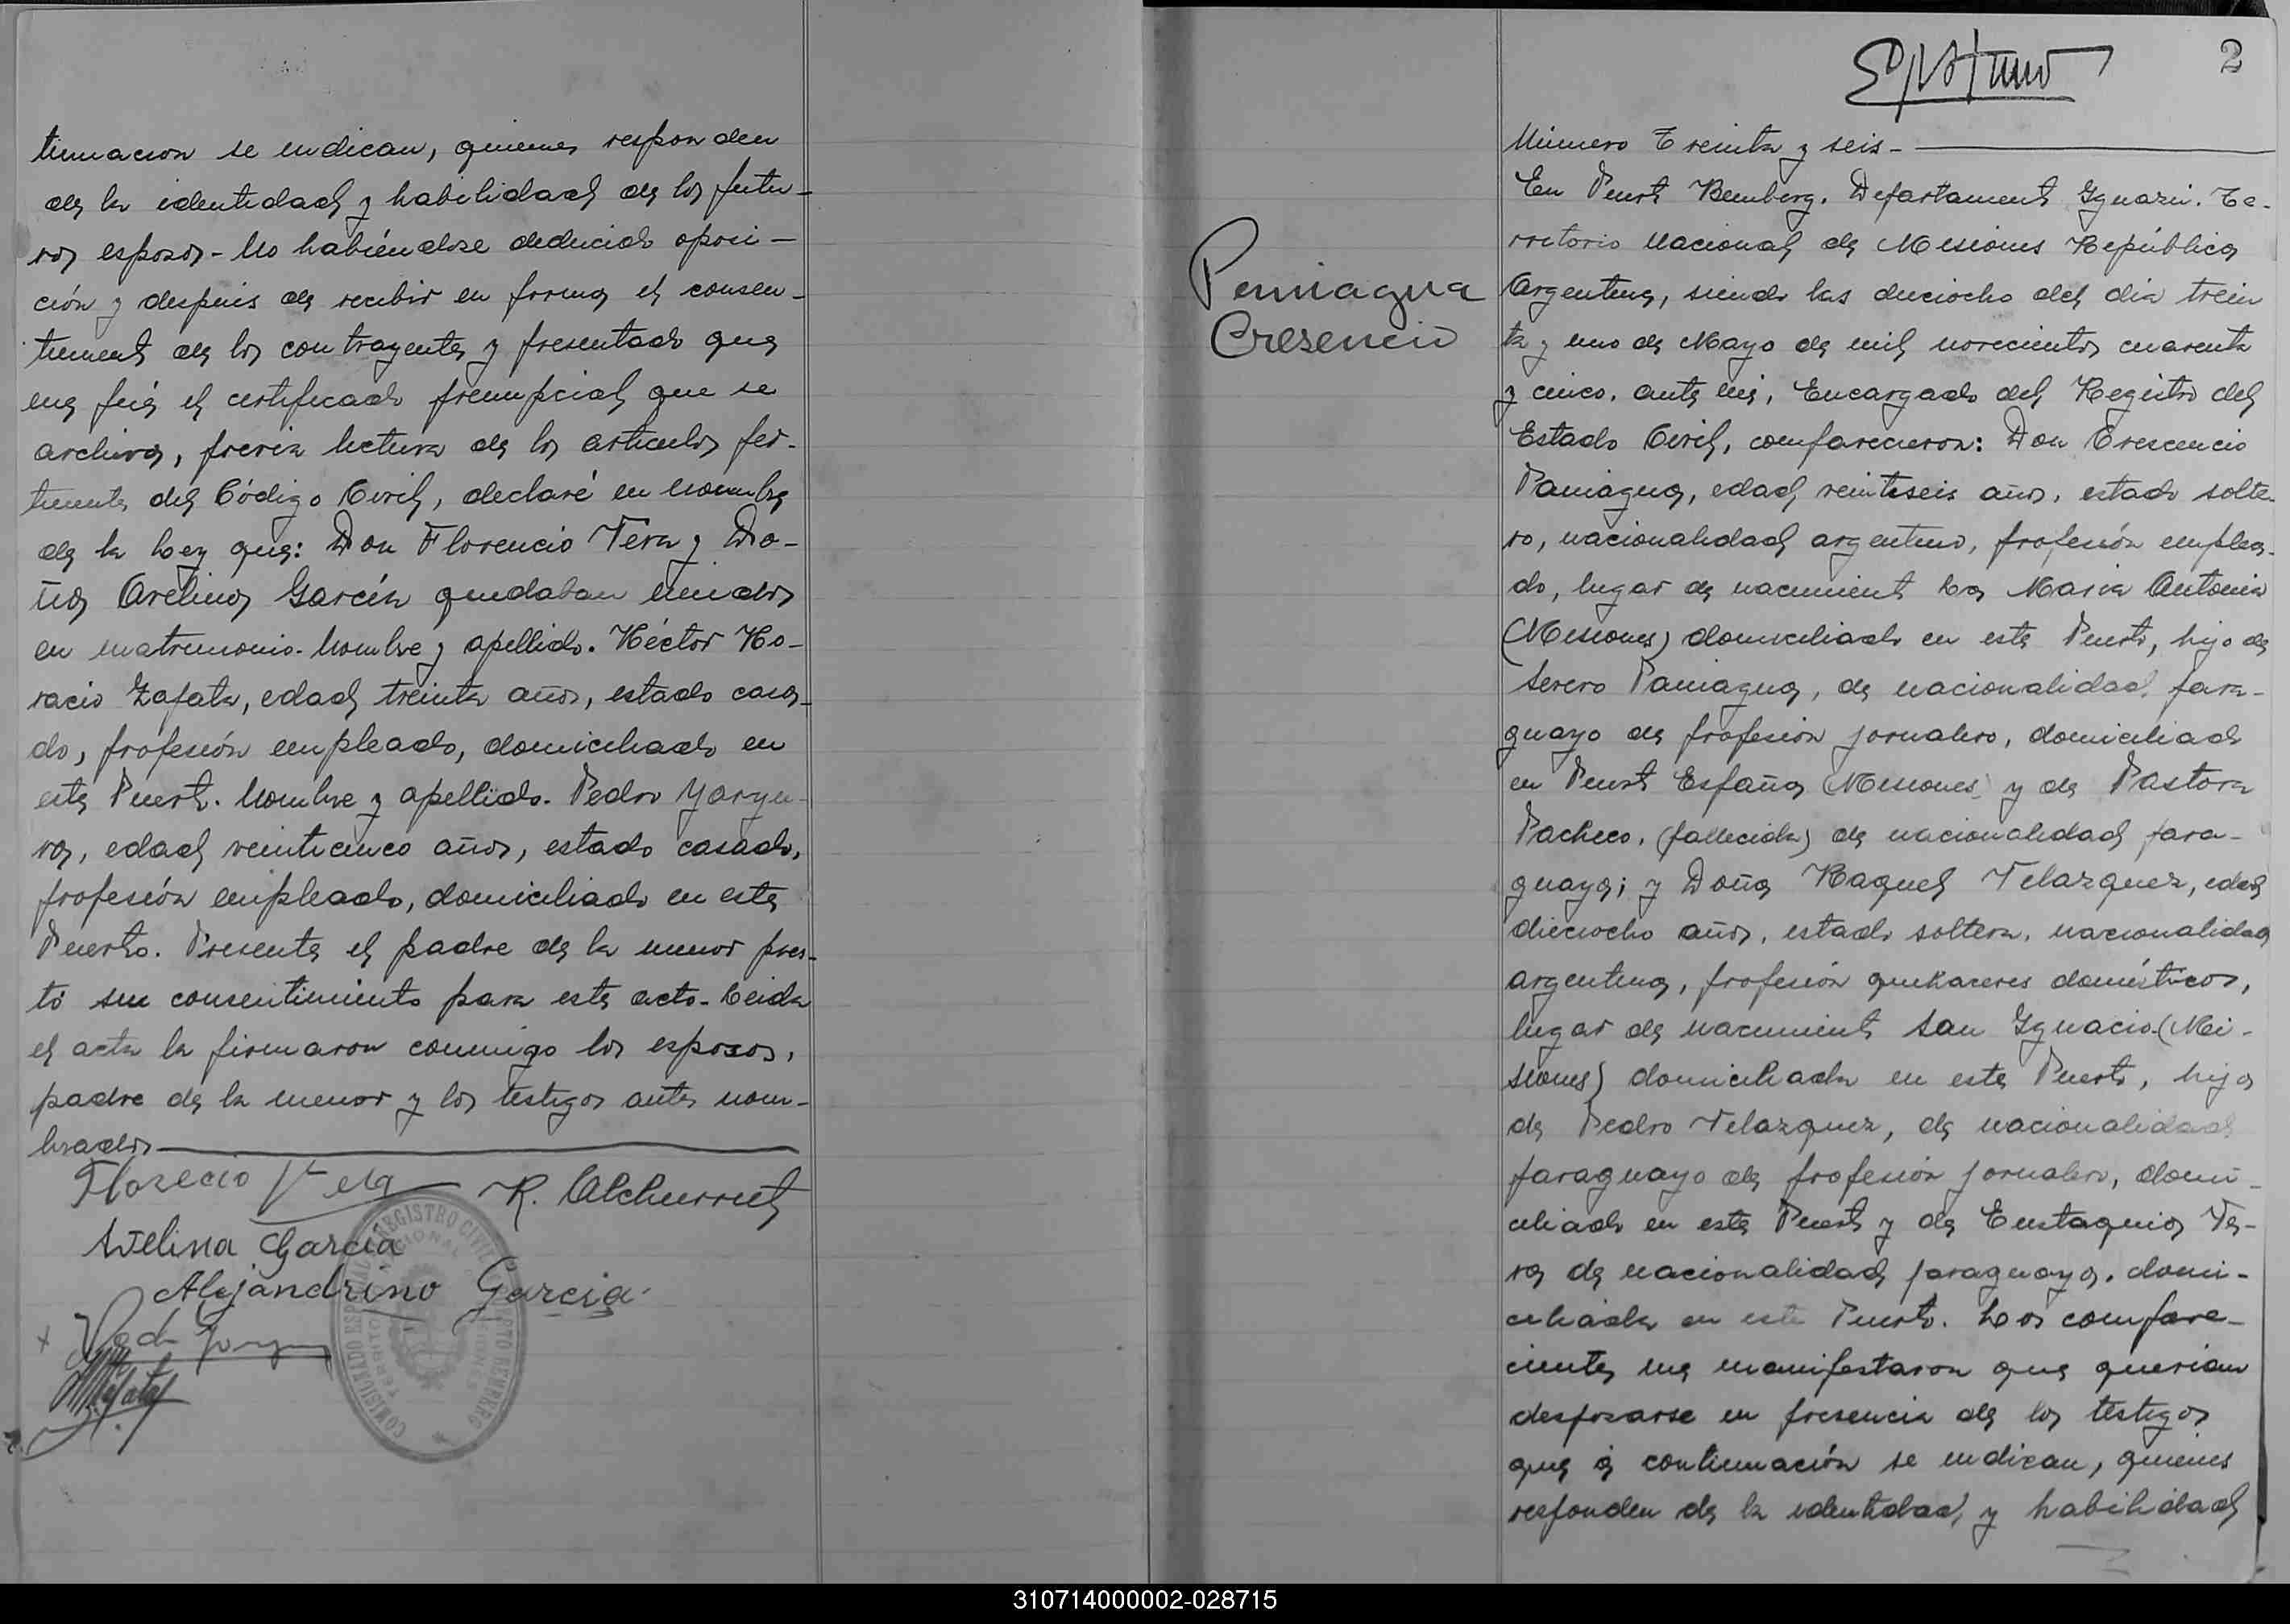 tinuacion se indican, quienes responden
de la identidad y habilidad de los futu-
ros esposos - No habiéndose deducido oposi-
ción y después de recibir en forma el consen-
timiento de los contrayentes y presentado que
me fué el certificado prenupcial que se
archiva, previa lectura de los articulos per-
tinentes del Código Civil, declaré en nombre
de la Ley que: Don Florencio Vera y Do-
ña Avelina García quedaban unidos
en matrimonio. Nombre y apellido. Héctor Ho-
racio Zapata, edad treinta años, estado casa-
do, profesión empleado, domiciliado en
este Puerto. Nombre y apellido. Pedro Yaryu-
ra, edad veinticinco años, estado casado,
profesión empleado, domiciliado en este
Puerto. Presente el padre de la menor pres-
tó su consentimiento para este acto - Leida
el acta la firmaron conmigo los esposos,
padre de la menor y los testigos antes nom-
brados
Florecio Vera
R. Alchurrut
Avelina García
Alejandrino Garcia
COMISIONADO ESPECIAL REGISTRO CIVIL PUERTO BEMBERG
TERRITORIO NACIONAL MISIONES
2
Número Treinta y seis -
En Puerto Bemberg. Departamento Iguazú. Te-
rritorio Nacional de Misiones República
Argentina, siendo las dieciocho del dia trein
ta y uno de Mayo de mil novecientos cuarenta
y cinco, ante mi, Encargado del Registro del
Estado Civil, comparecieron: Don Crescencio
Paniagua, edad veintiseis años, estado solte-
ro, nacionalidad argentino, profesión emplea-
do, lugar de nacimiento La Maria Antonia
(Misiones) domiciliado en este Puerto, hijo de
Severo Paniagua, de nacionalidad para-
guayo de profesión jornalero, domiciliado
en Puerto España (Misiones) y de Pastora
Pacheco, (fallecida) de nacionalidad para-
guaya; y Doña Raquel Velazquez, edad
dieciocho años, estado soltera, nacionalidad
argentina, profesión quehaceres domésticos,
lugar de nacimiento San Ignacio (Mi-
siones) domiciliada en este Puerto, hija
de Pedro Velazquez, de nacionalidad
paraguayo de profesión jornalero, domi-
ciliado en este Puerto y de Eustaquia Ve-
ra de nacionalidad paraguaya, domi-
ciliada en este Puerto. Los compare-
cientes me manifestaron que querian
desposarse en presencia de los testigos
que a continuación se indican, quienes
responden de la identidad y habilidad
Peniagua
Cresencio
310714000002-028715